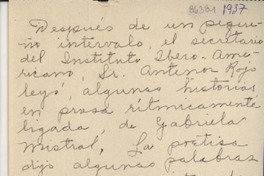 86381 1937
Después de un peque-
ño intervalo, el secretario
del Instituto Ibero-Ame-
ricano, Sr. Antenor Rojo
leyó, algunas historias
en prosa ritmicamente
ligada, de Gabriela
Mistral. La poetisa
dijo algunas palabras